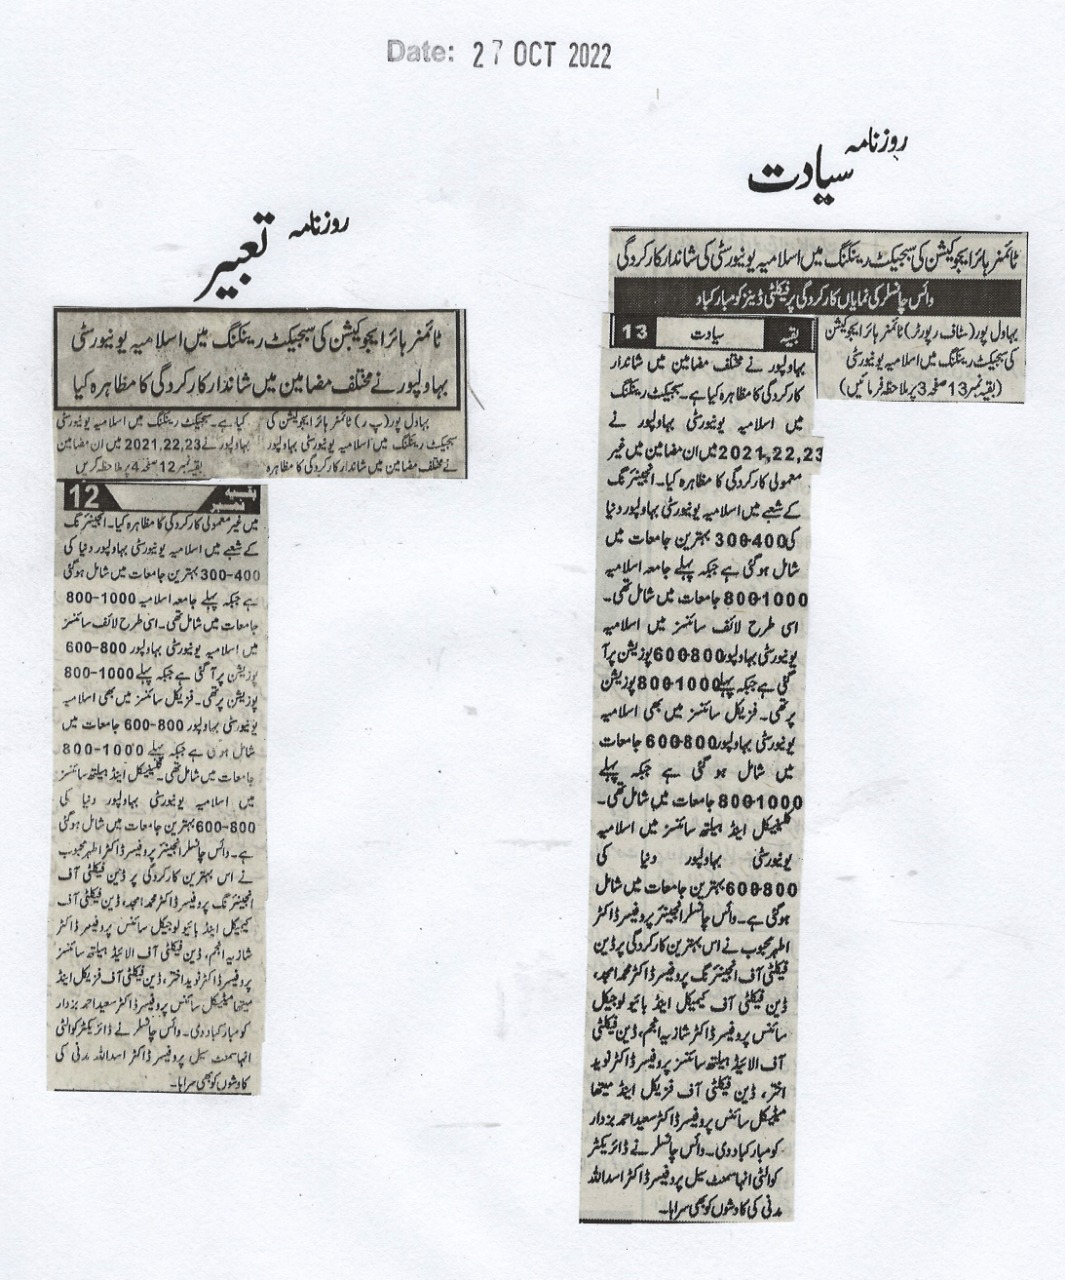 Date: 27 OCT 2022
روزنامہ
سیادت
ٹائمنر ہائر ایجوکیشن کی سبجیکٹ رینکنگ میں اسلامیہ یونیورسٹی کی شاندار کارکردگی
وائس چانسلر کی نمایاں کارکردگی پر فیکلٹی ڈینز کو مبارکباد
بہاول پور (سٹاف رپورٹر) ٹائمنر ہائر ایجوکیشن
کی سبجیکٹ رینکنگ میں اسلامیہ یونیورسٹی
(بقیہ نمبر 13 صفحہ 3 پر ملاحظہ فرمائیں)
بقیہ سیادت 13
بہاولپور نے مختلف مضامین میں شاندار
کارکردگی کا مظاہرہ کیا ہے۔ سبجیکٹ رینکنگ
میں اسلامیہ یونیورسٹی بہاولپور نے
2021,22,23 میں ان مضامین میں غیر
معمولی کارکردگی کا مظاہرہ کیا۔ انجینئرنگ
کے شعبے میں اسلامیہ یونیورسٹی بہاولپور دنیا
کی 300-400 بہترین جامعات میں
شامل ہوگئی ہے جبکہ پہلے جامعہ اسلامیہ
800-1000 جامعات میں شامل تھی۔
اسی طرح لائف سائنسز میں اسلامیہ
یونیورسٹی بہاولپور 600-800 پوزیشن پر آ
گئی ہے جبکہ پہلے 800-1000 پوزیشن
پر تھی۔ فزیکل سائنسز میں بھی اسلامیہ
یونیورسٹی بہاولپور 600-800 جامعات
میں شامل ہو گئی ہے جبکہ پہلے
800-1000 جامعات میں شامل تھی۔
کلینیکل اینڈ ہیلتھ سائنسز میں اسلامیہ
یونیورسٹی بہاولپور دنیا کی
600-800 بہترین جامعات میں شامل
ہوگئی ہے۔ وائس چانسلر انجینئر پروفیسر ڈاکٹر
اطہر محبوب نے اس بہترین کارکردگی پر ڈین
فیکلٹی آف انجینئرنگ پروفیسر ڈاکٹر محمد امجد،
ڈین فیکلٹی آف کیمیکل اینڈ بائیولوجیکل
سائنس پروفیسر ڈاکٹر شازیہ انجم، ڈین فیکلٹی
آف الائیڈ ہیلتھ سائنسز پروفیسر ڈاکٹر نوید
اختر، ڈین فیکلٹی آف فزیکل اینڈ میتھا
میٹیکل سائنس پروفیسر ڈاکٹر سعید احمد بزدار
کو مبارکباد دی۔ وائس چانسلر نے ڈائریکٹر
کوالٹی انہاسمنٹ سیل پروفیسر ڈاکٹر اسد اللہ
مدنی کی کاوشوں کو بھی سراہا۔
روزنامہ
تعبیر
ٹائمنر ہائر ایجوکیشن کی سبجیکٹ رینکنگ میں اسلامیہ یونیورسٹی
بہاولپور نے مختلف مضامین میں شاندار کارکردگی کا مظاہرہ کیا
بہاول پور (پ ر) ٹائمنر ہائر ایجوکیشن کی
سبجیکٹ رینکنگ میں اسلامیہ یونیورسٹی بہاولپور
نے مختلف مضامین میں شاندار کارکردگی کا مظاہرہ
کیا ہے۔ سبجیکٹ رینکنگ میں اسلامیہ یونیورسٹی
بہاولپور نے 2021,22,23 میں ان مضامین
بقیہ نمبر 12 صفحہ 4 پر ملاحظہ کریں
بقیہ نمبر 12
میں غیر معمولی کارکردگی کا مظاہرہ کیا۔ انجینئرنگ
کے شعبے میں اسلامیہ یونیورسٹی بہاولپور دنیا کی
300-400 بہترین جامعات میں شامل ہوگئی
ہے جبکہ پہلے جامعہ اسلامیہ 800-1000
جامعات میں شامل تھی۔ اسی طرح لائف سائنسز
میں اسلامیہ یونیورسٹی بہاولپور 600-800
پوزیشن پر آ گئی ہے جبکہ پہلے 800-1000
پوزیشن پر تھی۔ فزیکل سائنسز میں بھی اسلامیہ
یونیورسٹی بہاولپور 600-800 جامعات میں
شامل ہوگئی ہے جبکہ پہلے 800-1000
جامعات میں شامل تھی۔ کلینیکل اینڈ ہیلتھ سائنسز
میں اسلامیہ یونیورسٹی بہاولپور دنیا کی
600-800 بہترین جامعات میں شامل ہوگئی
ہے۔ وائس چانسلر انجینئر پروفیسر ڈاکٹر اطہر محبوب
نے اس بہترین کارکردگی پر ڈین فیکلٹی آف
انجینئرنگ پروفیسر ڈاکٹر محمد امجد، ڈین فیکلٹی آف
کیمیکل اینڈ بائیولوجیکل سائنس پروفیسر ڈاکٹر
شازیہ انجم، ڈین فیکلٹی آف الائیڈ ہیلتھ سائنسز
پروفیسر ڈاکٹر نوید اختر، ڈین فیکلٹی آف فزیکل اینڈ
میتھا میٹیکل سائنس پروفیسر ڈاکٹر سعید احمد بزدار
کو مبارکباد دی۔ وائس چانسلر نے ڈائریکٹر کوالٹی
انہاسمنٹ سیل پروفیسر ڈاکٹر اسد اللہ مدنی کی
کاوشوں کو بھی سراہا۔